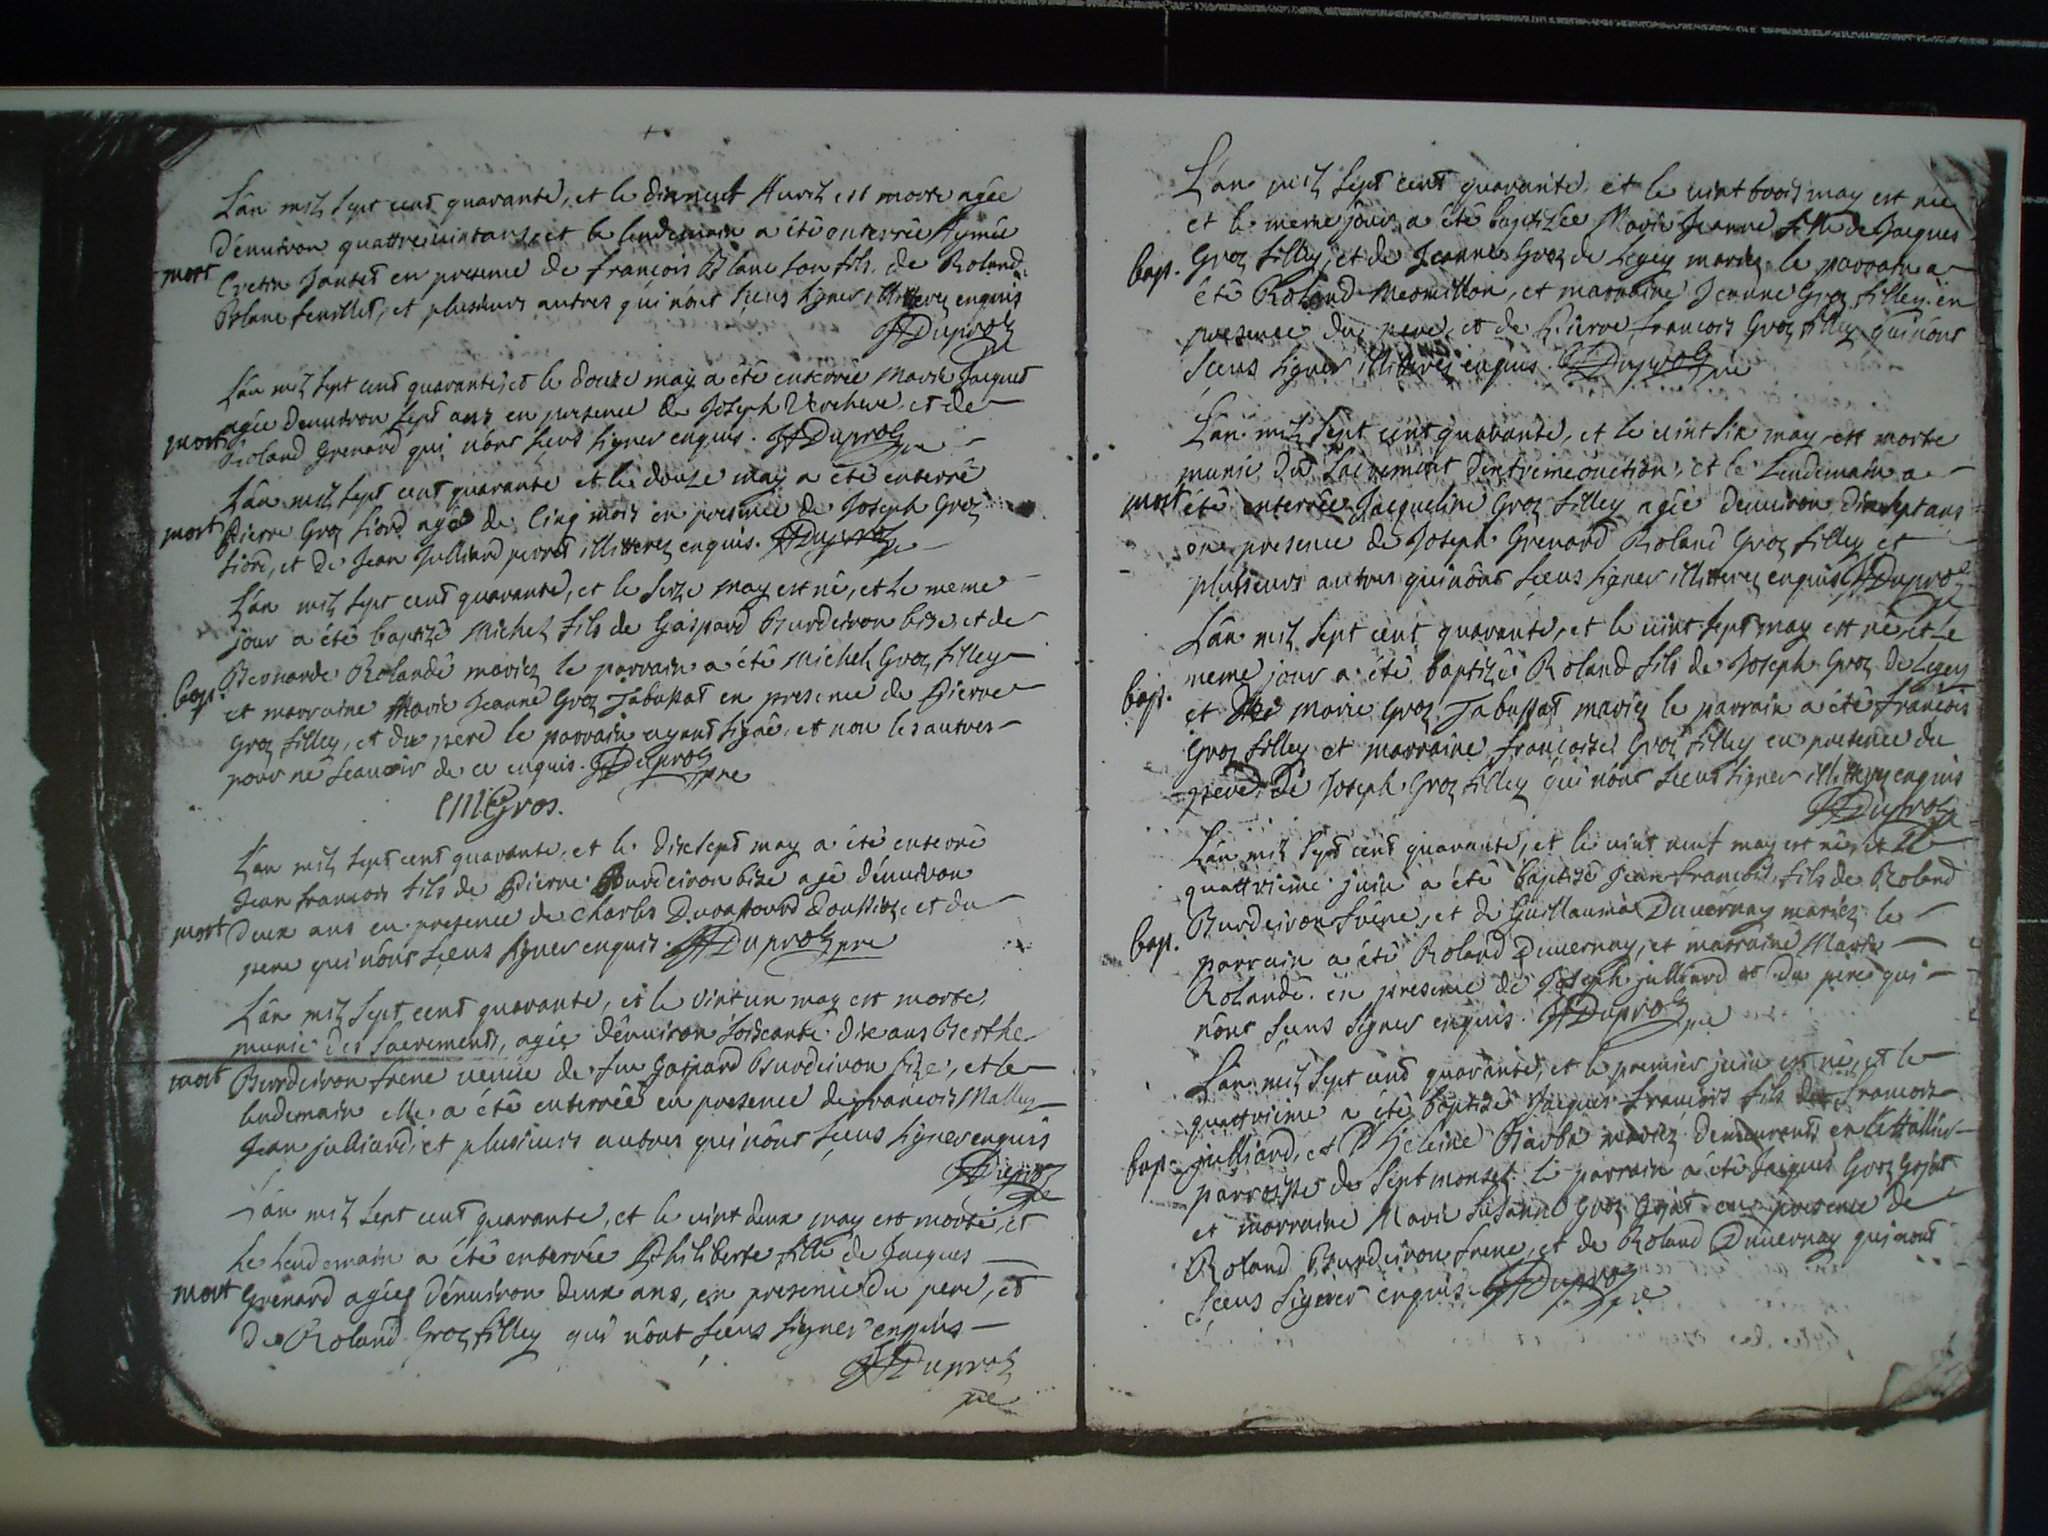 L'an mil sept cent quarante, et le dixneuf Avril est morte agée
d'environ quattrevint ans, et le lendemain a été enterrée Aymée
mort Cretin Jantet en presence de françois Blanc son fils, de Roland
Blanc feuillet, et plusieurs autres qui n'ont sceus signer illitterez enquis
Duproz
pre
L'an mil sept cent quarante, et le douze may a été enterrée Marie Jacquet
agée d'environ sept ans en presence de Joseph Verchere et de
mort Roland Grenard qui n'ont sceus signer enquis. Duproz pre
L'an mil sept cent quarante et le douze may a été enterré
mort Pierre Groz fiord agé de cinq mois en presence de Joseph Groz
fiord, et de Jean Julliard perret illitterez enquis. Duproz pre
L'an mil sept cent quarante, et le seize may est né, et le meme
jour a été baptizé Michel fils de Gaspard Burdeiron bize et de
bap. Bernarde Rolande mariez le parrain a été Michel Groz filley
et marraine Marie Jeanne Groz Tabussat en presence de Pierre
Groz filley, et du pere le parrain ayant signé, et non les autres
pour ne sçauoir de ce enquis. Duproz pre
Gros.
L'an mil sept cent quarante, et le dixsept may a été enterré
Jean françois fils de Pierre Burdeiron bize agé d'environ
mort deux ans en presence de Charles et du
pere qui n'ont sceus signer enquis. Duproz pre
L'an mil sept cent quarante, et le vint un may est morte
munie des sacrements, agée d'environ soixante dix ans Berthe
mort Burdeiron frene veuve de feu Gaspard Burdeiron bize, et le
lendemain elle a été enterrée en presence de françois Malley
Jean julliard, et plusieurs autres qui n'ont sceus signer enquis
Duproz
pre
L'an mil sept cent quarante, et le vint deux may est morte, et
le lendemain a été enterrée Philiberte fille de Jacques
mort Grenard agée d'environ deux ans, en presence du pere, et
de Roland Groz filley qui n'ont sceus signer enquis
Duproz
pre
L'an mil sept cent quarante, et le vint trois may est née
et le meme jour a été baptizée Marie Jeanne fille de Jacques
bap. Groz filley, et de Jeanne Groz de Legey mariez le parrain a
été Roland Mermillon, et marraine Jeanne Groz filley en
presence du pere, et de Pierre françois Groz filley qui n'ont
sceus signer illitterez enquis. Duproz pre
L'an mil sept cent quarante, et le vint six may est morte
munie du sacrement d'extreme onction, et le lendemain a
mort été enterrée Jacqueline Groz filley agée d'environ dixsept ans
en presence de Joseph Grenard Roland Groz filley et
plusieurs autres qui n'ont sceus signer illitterez enquis Duproz
pre
L'an mil sept cent quarante, et le vint sept may est né et le
meme jour a été baptizé Roland fils de Joseph Groz de Legey
bap. et Marie Groz Tabussat mariez le parrain a été françois
Groz filley et marraine françoise Groz filley en presence du
pere, de Joseph Groz filley qui n'ont sceus signer illitterez enquis
Duproz
L'an mil sept cent quarante, et le vint neuf may est né, et le
quattrieme juin a été baptizé Jean françois fils de Roland
Burdeiron frene, et de Guillauma Duvernay mariez le
bap. parrain a été Roland Duvernay, et marraine Marie
Rolande en presence de Joseph julliard et du pere qui
n'ont sceus signer enquis. Duproz pre
L'an mil sept cent quarante, et le premier juin est né, et le
quattrieme a été baptizé Jacques françois fils de françois
bap. julliard, et d'Heleine Barbe mariez demeurants en
parroisse de Septmoncel le parrain a été Jacques Groz Gojat
et marraine Marie Susanne Groz Gojat en presence de
Roland Burdeiron frene, et de Roland Duvernay qui n'ont
sceus signer enquis. Duproz pre